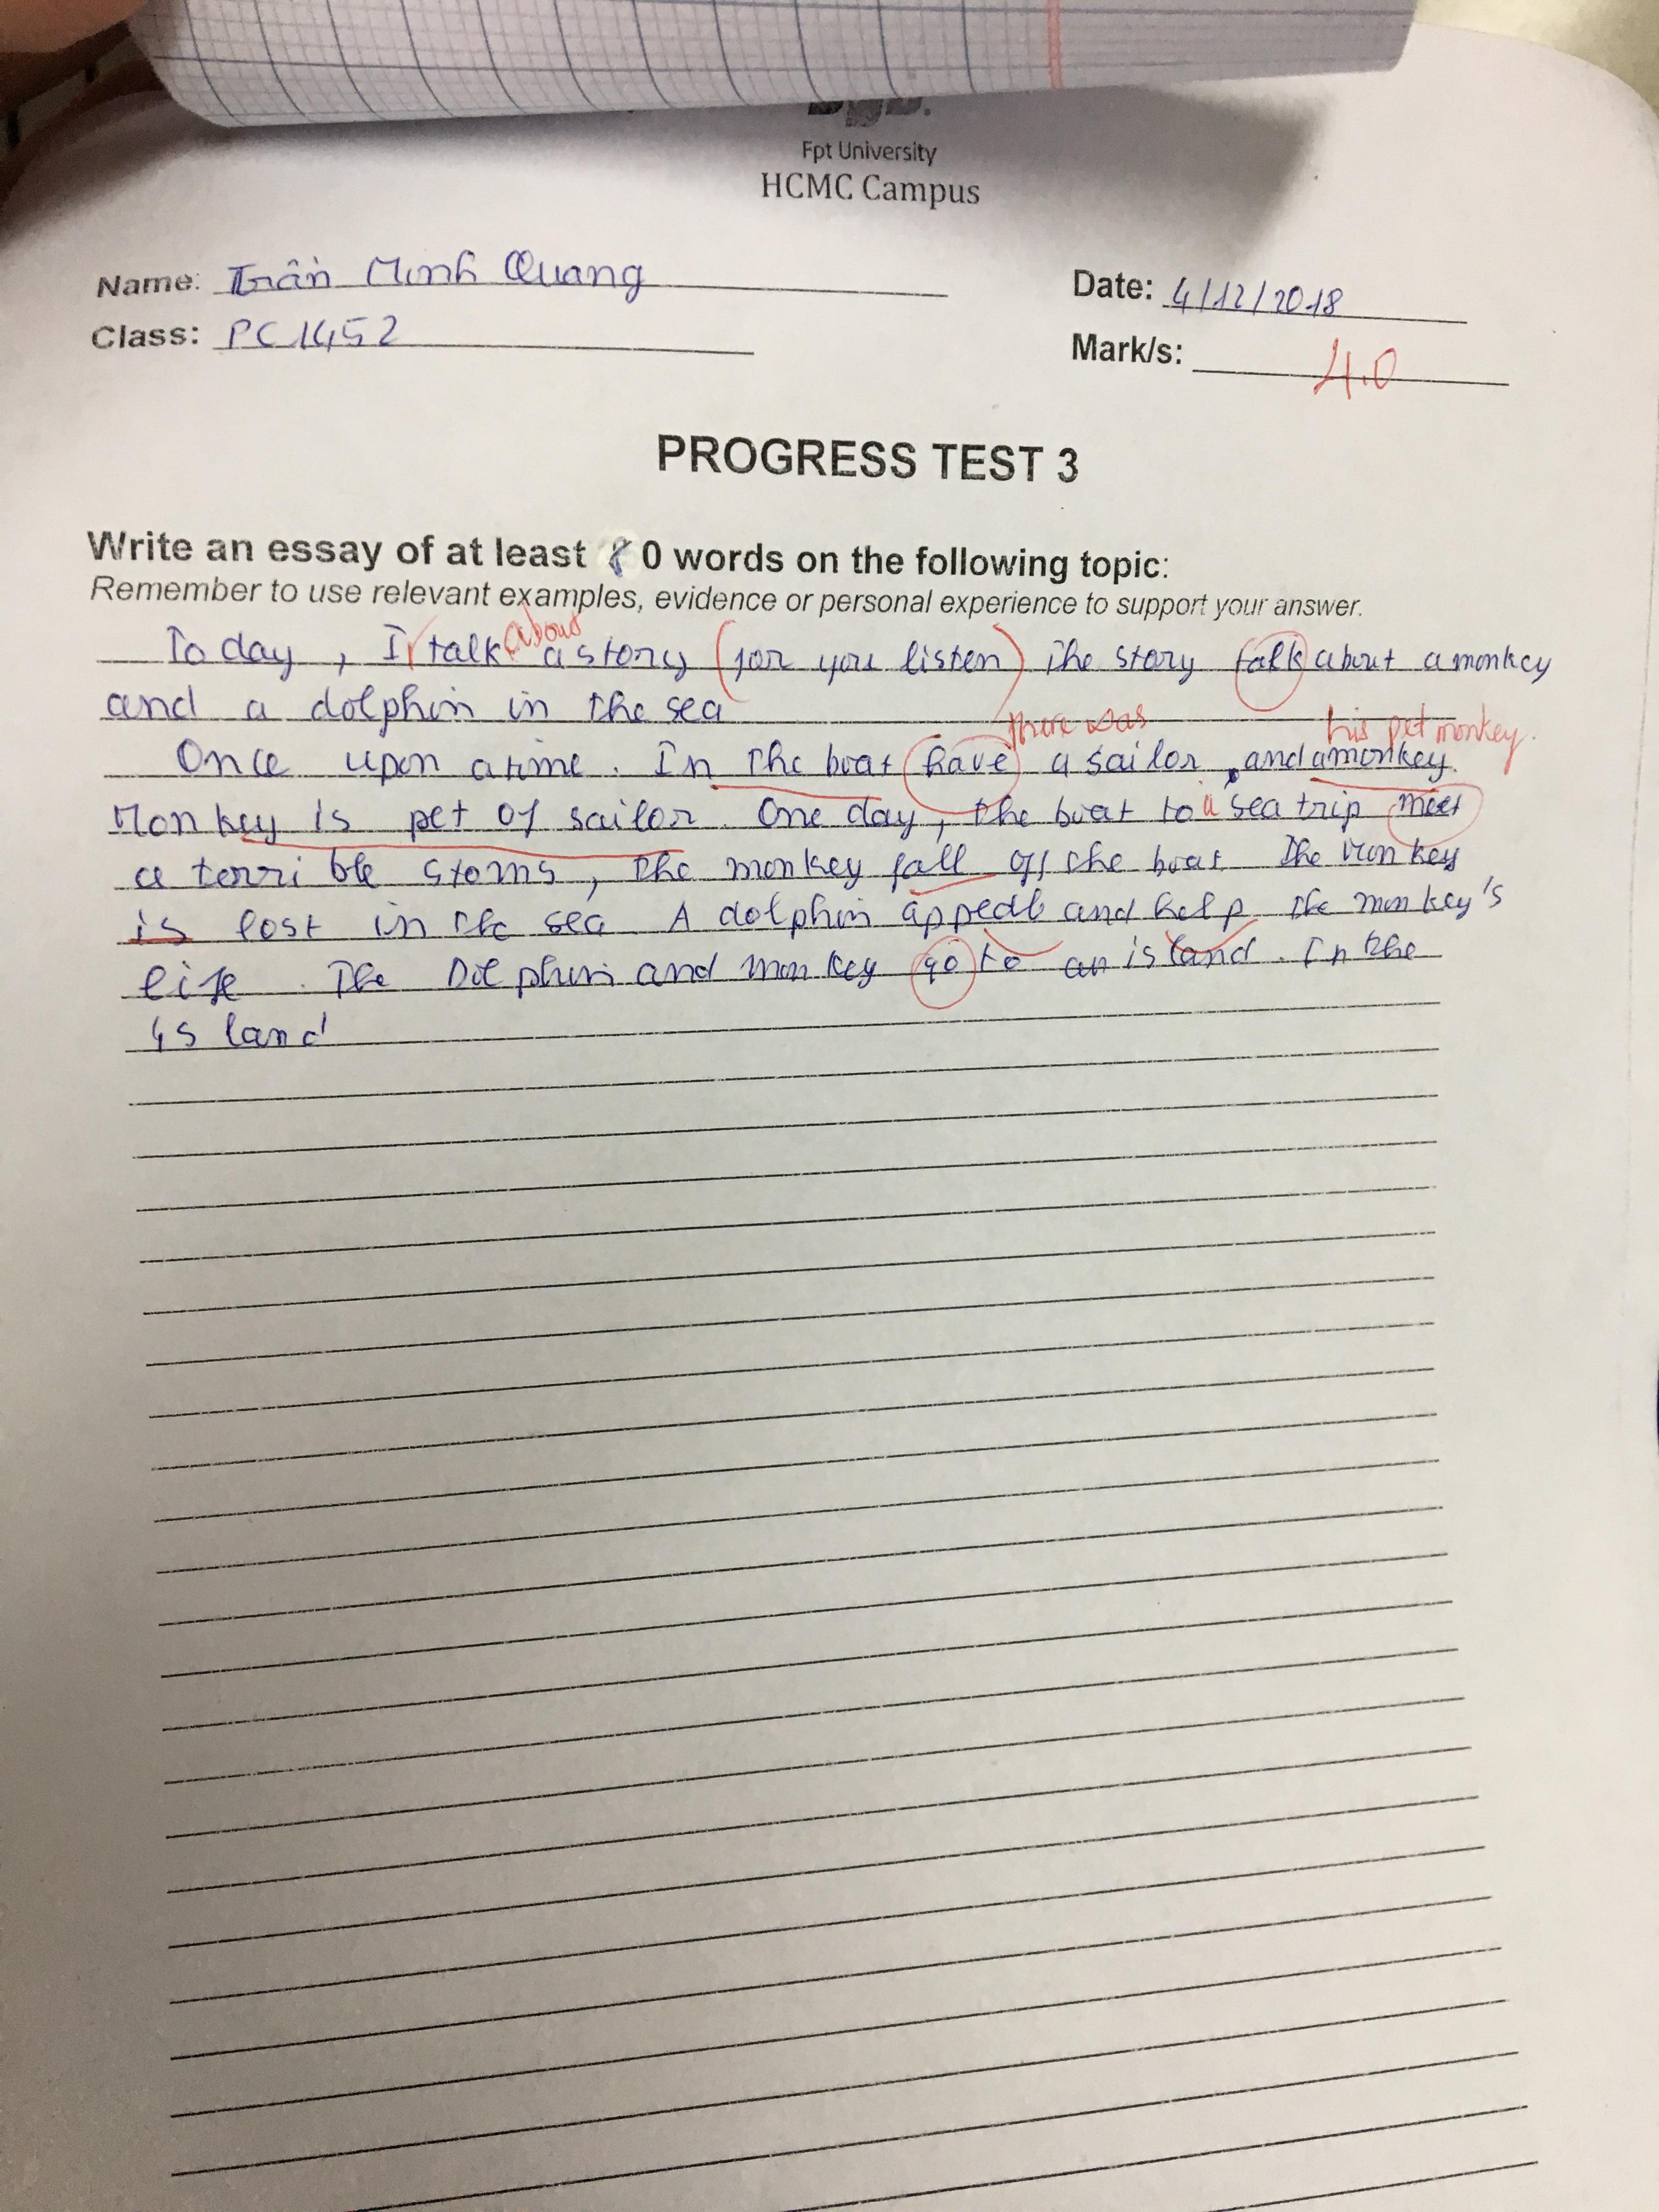 Fpt University
HCMC Campus
Name: Trần Minh Quang
Date: 4/12/2018
Class: PC1452
Mark/s: 4.0
PROGRESS TEST 3
Write an essay of at least 80 words on the following topic:
Remember to use relevant examples, evidence or personal experience to support your answer.
about
To day, I talk a story (for you listen) The story talk about a monkey
and a dolphin in the sea
there was his pet monkey.
Once upon a time. In the boat have a sailor, and a monkey.
Monkey is pet of sailor. One day, the boat to a sea trip meet
a terrible stoms, the monkey fall off the boat. The monkey
is lost in the sea. A dolphin and help the monkey's
life. The Dolphin and monkey go to an island. In the
island